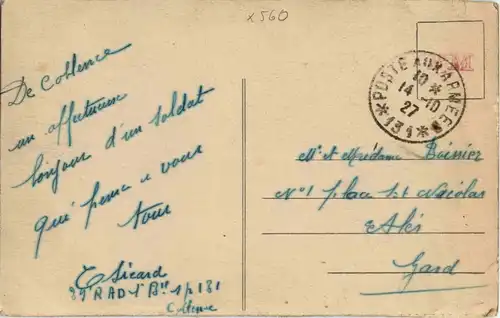 x560
De Coblence
un affectueux
bonjour d'un soldat
qui pense a vous
tous
Sicard
39 RAD 1 Bie SP 181
Coblence
POSTE AUX ARMEES
10 *
14 -10
27
* 181 *
FM
Mr et Madame Boinier
No 1 place St Nicolas
Alés
Gard